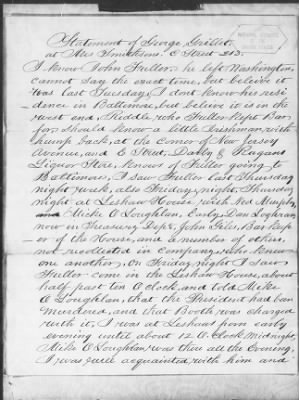 Statement of George Grillet
at Mrs Smithson's. E Street 213.
I know John Fuller he left Washington
cannot say the exact time, but beleive it
was last Tuesday, I dont know his resi
dence in Baltimore, but beleive it is in the
west end, Riddle, who Fuller kept Bar
for, should know a little Irishman, with
hump back, at the corner of New Jersey
Avenue, and E Street, Early & Fergusons
Liquor Store, knows of Fuller going to
Baltimore, I saw Fuller last Thursday
night week, also Friday, night, Thursday
night at Leshaw House with Ned Murphy,
Mike O'Loughlan, Early, Dan Loghran
now in Treasury Dept, John Giles, Bar Keep
er of the House, and a number of others,
not recollected in Company who know
one another, On Friday night I saw
Fuller come in the Leshaw House, about
half past ten O'clock, and told Mike
O'Loughlan, that the President had been
Murdered, and that Booth was charged
with it, I was at Leshaw from early
evening until about 12 O'Clock Midnight,
Mike O'Loughlan, was there all the Evening,
I was well acquainted with him and